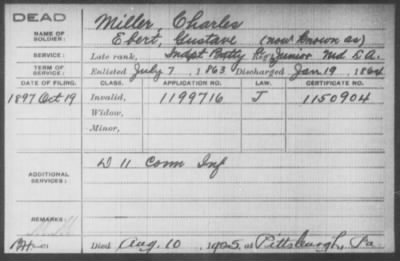 DEAD
Miller, Charles
NAME OF SOLDIER:
Ebert, Gustave (now known as)
SERVICE:
Late rank, Indpt Batty Junior Md L.A.
TERM OF SERVICE:
Enlisted July 7, 1863 Discharged Jan 19, 1864
DATE OF FILING. CLASS. APPLICATION NO. LAW. CERTIFICATE NO.
1897 Oct 19 Invalid, 1199716 J 1150904
Widow,
Minor,
ADDITIONAL SERVICES:
D 11 Conn Inf
REMARKS:
Died Aug. 10, 1925, at Pittsburgh, Pa.